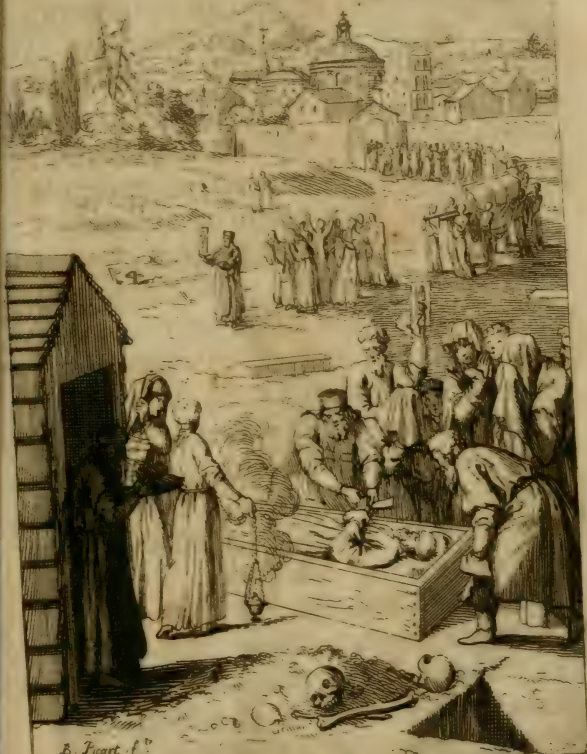 B. Picart. f.